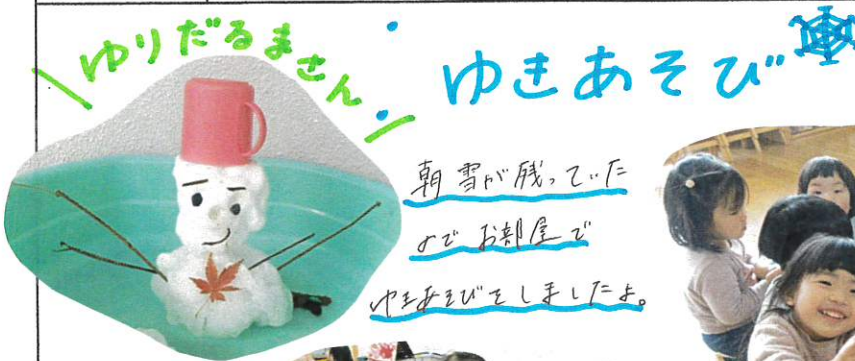 ゆりだるまさん
ゆきあそび
朝雪が残っていた
ので お部屋で
ゆきあそびをしましたよ。